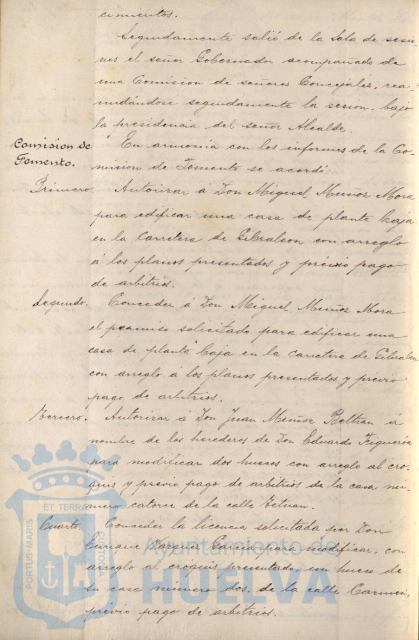 cimientos.
Seguidamente salió de la Sala de sesio
nes el señor Gobernador acompañado de
una Comision de señores Concejales, rea
nudándose seguidamente la sesion, bajo
la presidencia del señor Alcalde.
Comision de
Fomento.
En armonia con los informes de la Co
mision de Fomento se acordó:
Primero. Autorizar á Don Miguel Muñoz Mora
para edificar una casa de planta baja
en la Carretera de Gibraleon con arreglo
á los planos presentados y previo pago
de arbitrios.
Segundo. Conceder á Don Miguel Muñoz Mora
el permiso solicitado para edificar una
casa de planta baja en la carretera de Gibraleon
con arreglo á los planos presentados y previo
pago de arbitrios.
Tercero. Autorizar á Don Juan Muñoz Beltran á
nombre de los herederos de Don Eduardo Figueroa
para modificar dos huecos con arreglo al cro
quis y previo pago de arbitrios de la casa nú
mero catorce de la calle Tetuan.
Cuarto. Conceder la licencia solicitada por Don
Enrique Garcia para modificar, con
arreglo al croquis presentado, un hueco de
su casa número dos, de la calle Carmen,
previo pago de arbitrios.
PORTUS MARIS ET TERRAE CUSTODIA
Ayuntamiento de
HUELVA